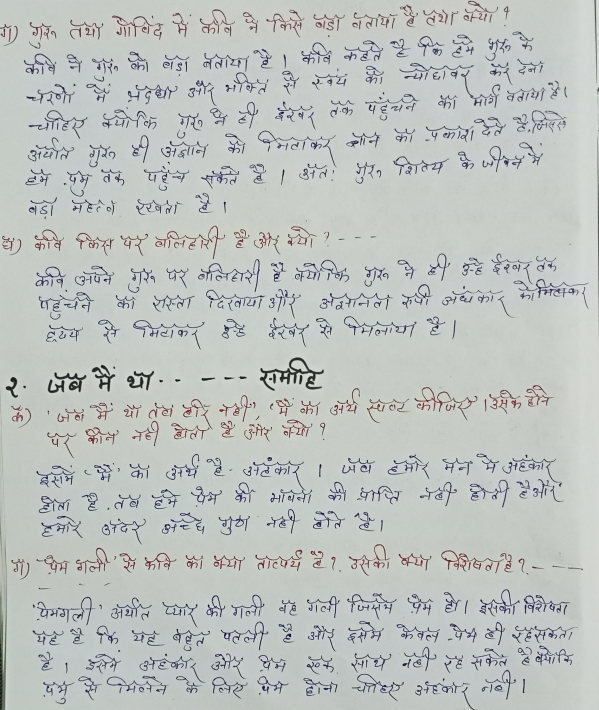 ग) गुरु तथा गोविंद में कवि ने किसे बड़ा बताया है तथा क्यों ?
कवि ने गुरु को बड़ा बताया है । कवि कहते है कि हमे गुरु के
चरणों में श्रद्धा और भक्ति से स्वयं को न्योछावर कर देना
चाहिए क्योंकि गुरु ने ही ईश्वर तक पहुंचने का मार्ग बताया है।
अर्थात गुरु ही अज्ञान को मिटाकर ज्ञान का प्रकाश देते है, जिससे
हम प्रभु तक पहुंच सकते है । अतः गुरु शिष्य के जीवन में
बड़ा महत्व रखता है ।
घ) कवि किस पर बलिहारी है और क्यों ? - - -
कवि अपने गुरु पर बलिहारी है क्योंकि गुरु ने ही उन्हे ईश्वर तक
पहुंचने का रास्ता दिखाया और अज्ञानता रूपी अंधकार को मिटाकर
हृदय से मिटाकर उन्हे ईश्वर से मिलाया है ।
२. जब मैं था - - - - - समाहि
क) 'जब मैं था तब हरि नहीं', 'मैं' का अर्थ स्पष्ट कीजिए । उसके होने
पर कौन नही होता है और क्यों ?
इसमें "मैं" का अर्थ है - अहंकार । जब हमारे मन मे अहंकार
होता है, तब हमे प्रेम की भावना की प्राप्ति नही होती है और
हमारे अंदर अच्छे गुण नही होते है।
ग) 'प्रेम गली' से कवि का क्या तात्पर्य है ? उसकी क्या विशेषता है ? - - - -
'प्रेमगली' अर्थात प्यार की गली वह गली जिसमें प्रेम हो । इसकी विशेषता
यह है कि यह बहुत पतली है और इसमे केवल प्रेम ही रह सकता
है । इसमें अहंकार और प्रेम एक साथ नही रह सकते है क्योंकि
प्रभु से मिलने के लिए प्रेम होना चाहिए अहंकार नहीं ।